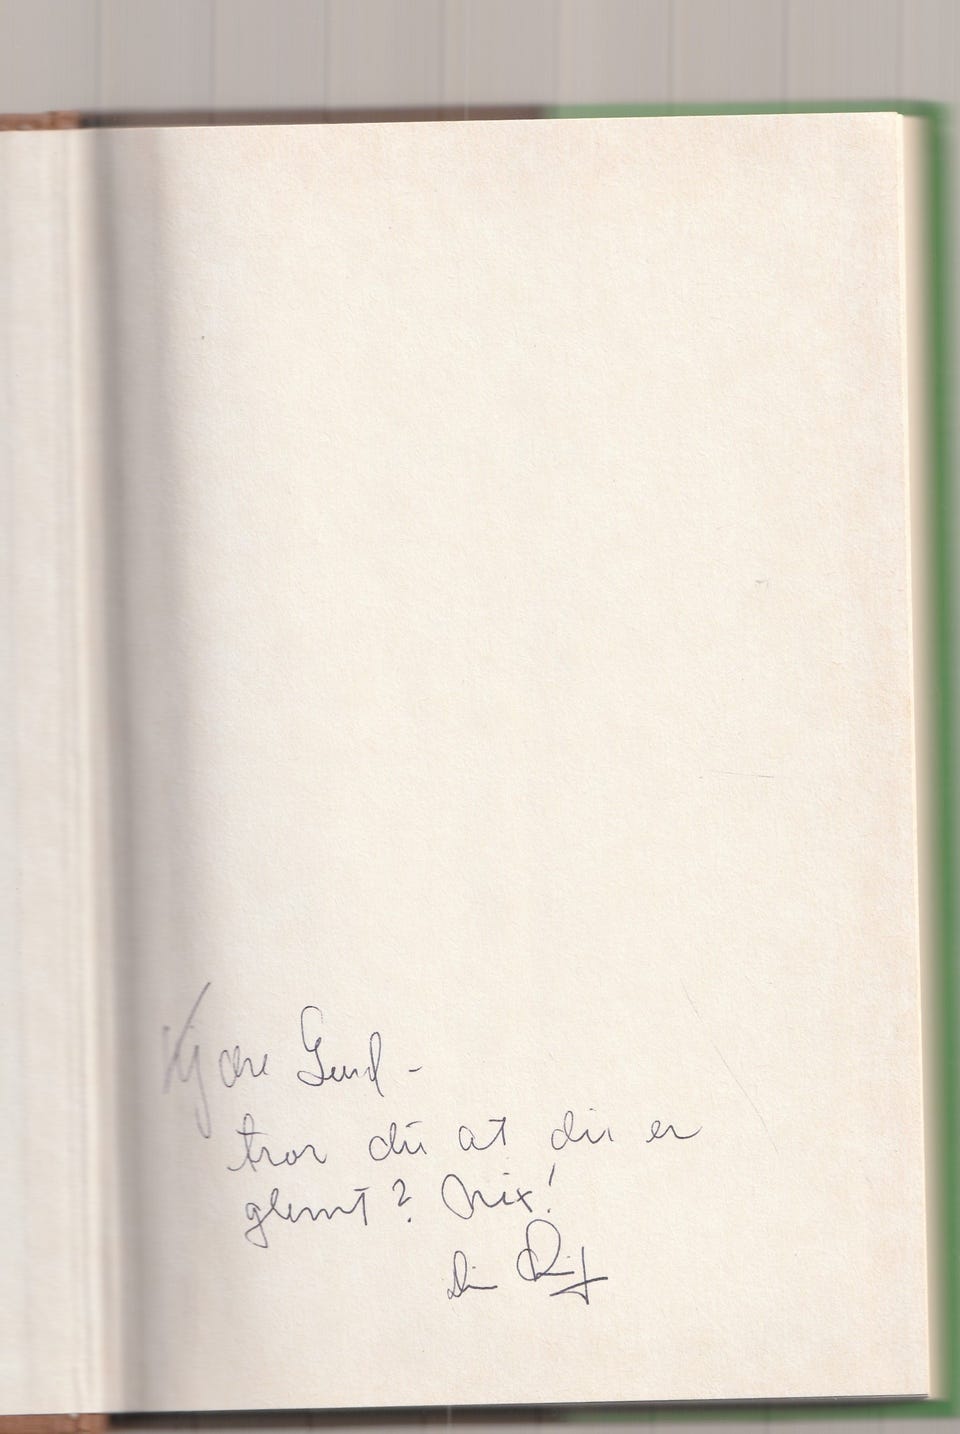 Kjære Gerd -
tror du at du er
glemt? Nix!
din